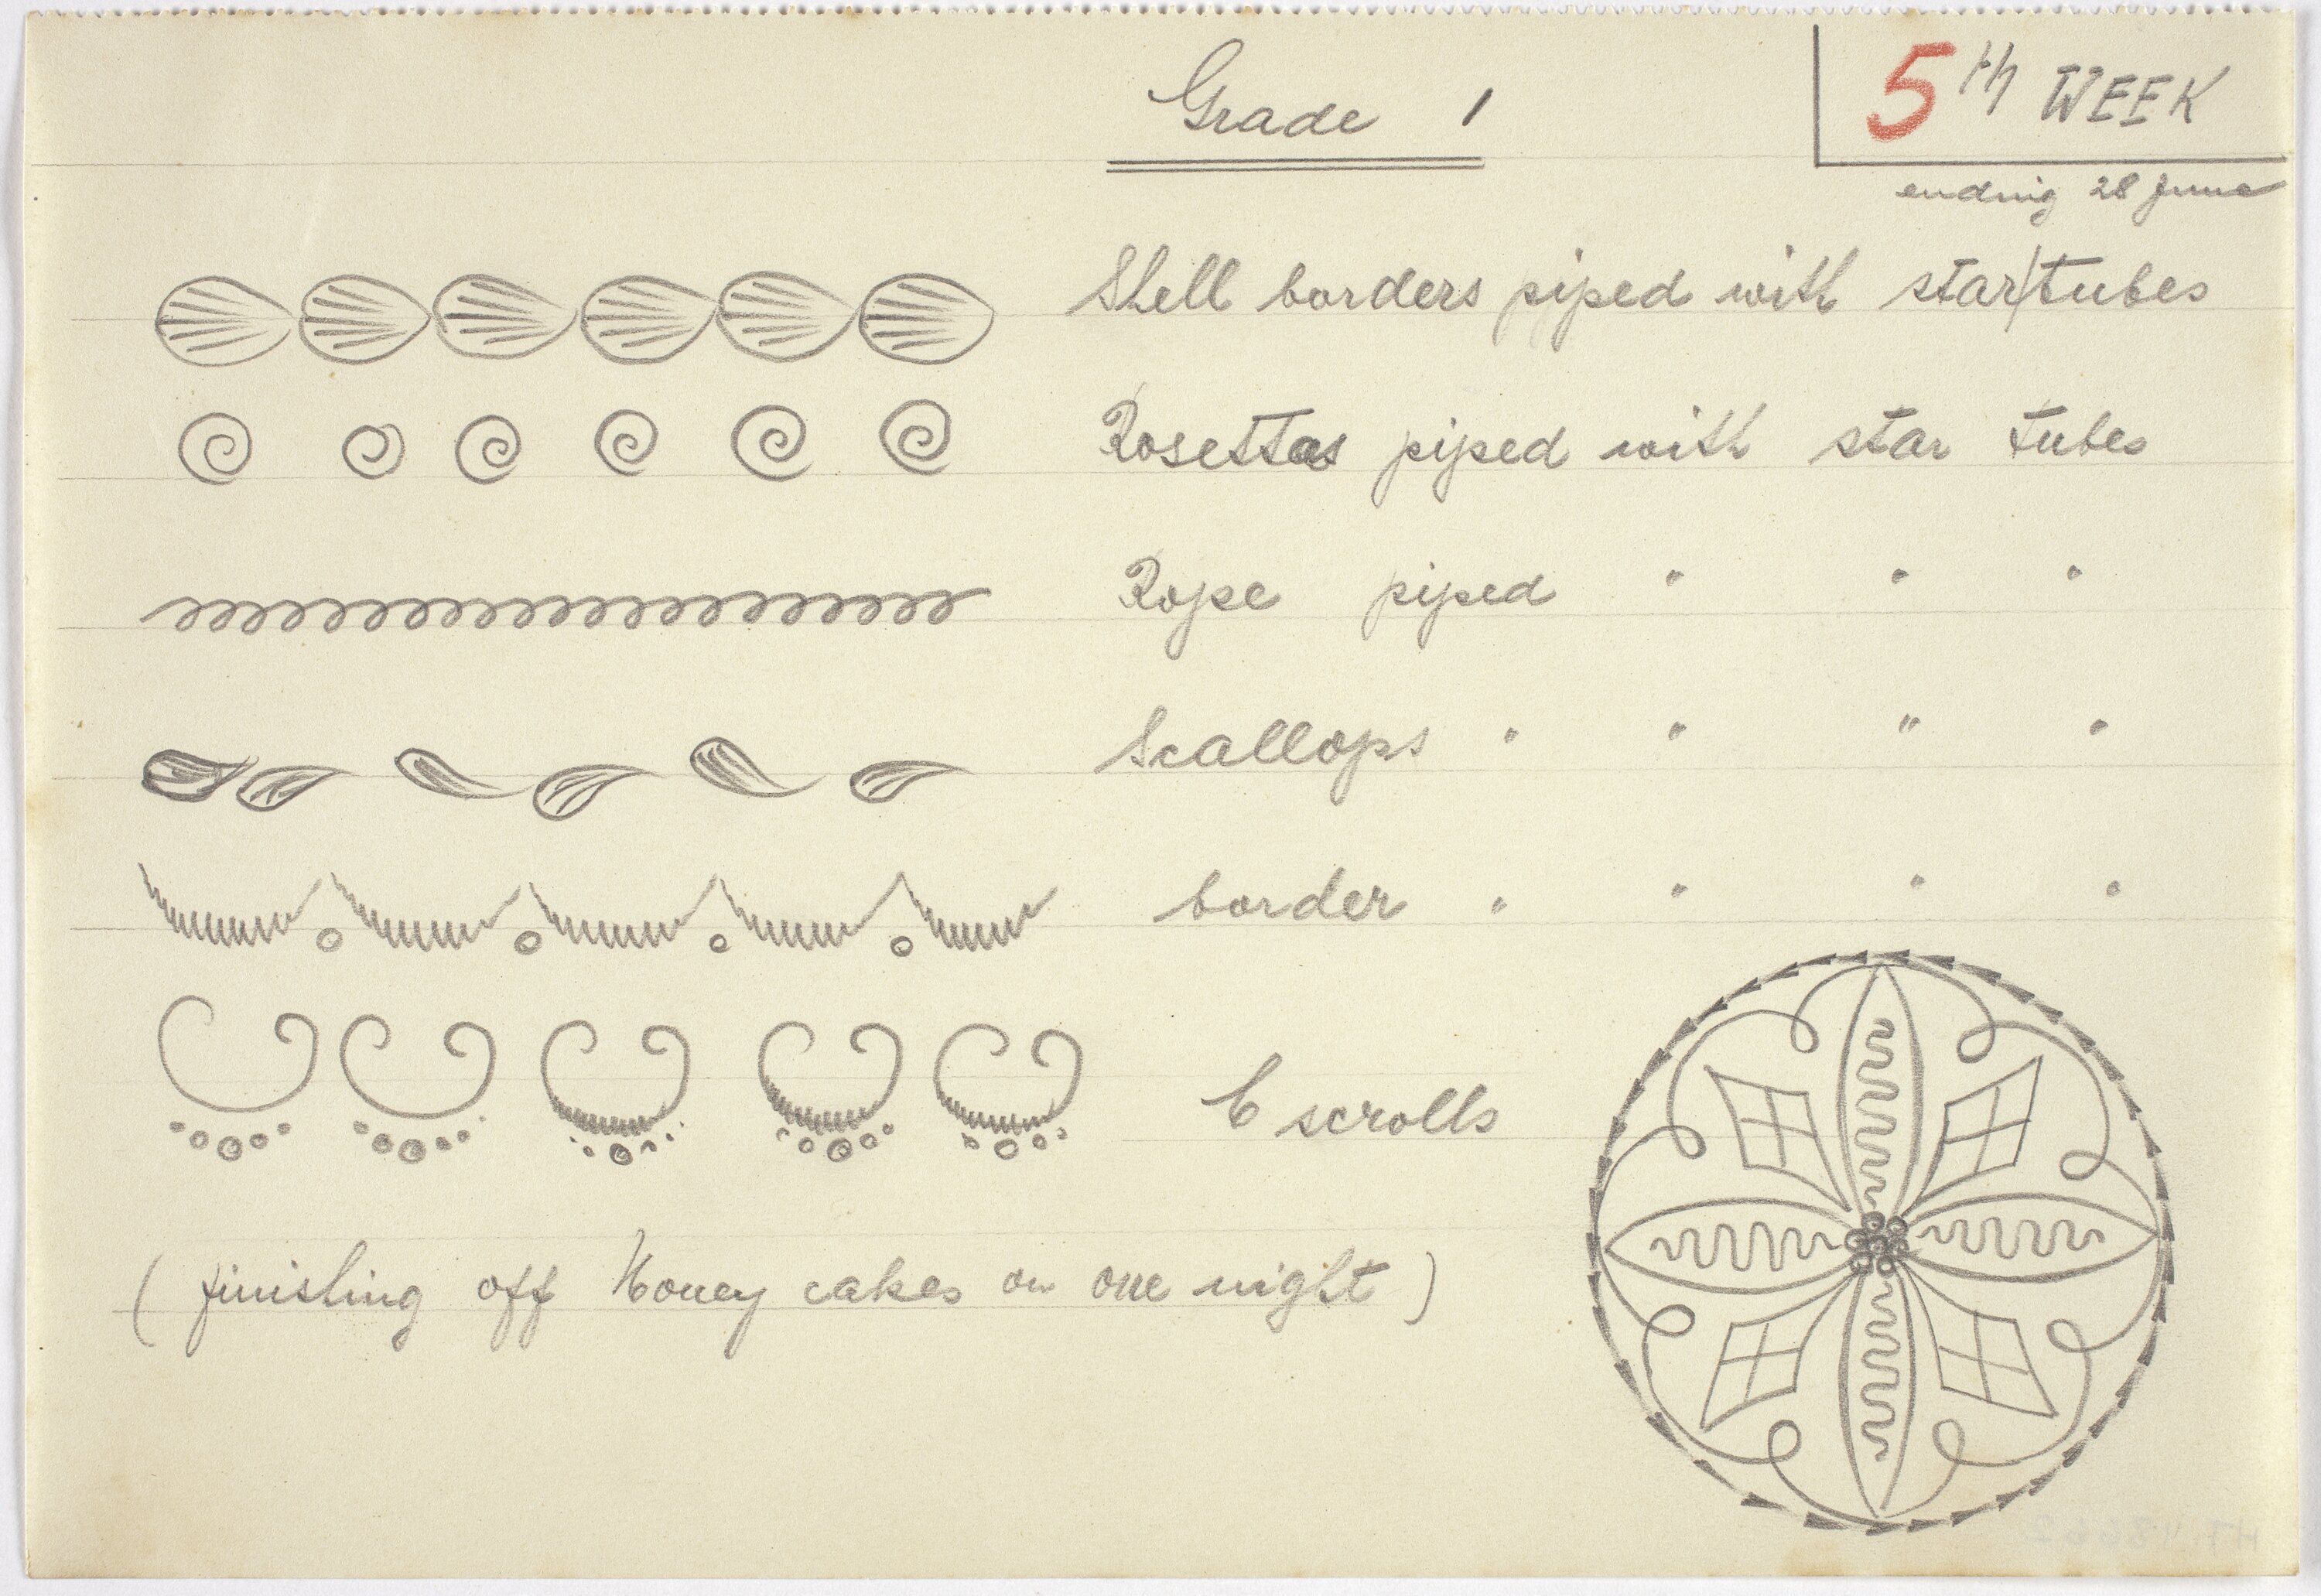 Grade 1
5th WEEK
ending 28 June
Shell borders piped with star/tubes
Rosettas piped with star tubes
Rope piped " " "
Scallops " " " "
border " " " "
C scrolls
( finishing off Honey cakes on one night )